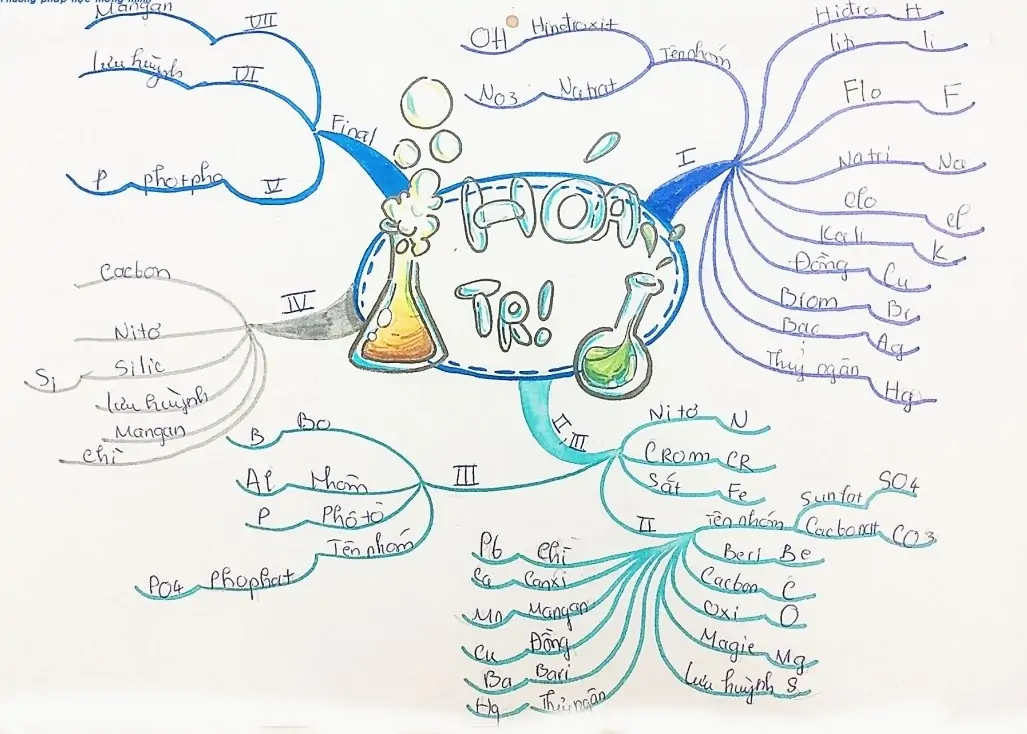 Phương pháp học thông minh
HÓA
TRỊ!
I
Tên nhóm
OH Hiđroxit
NO3 Natrat
Hiđro H
liti li
Flo F
Natri Na
clo cl
Kali K
Đồng Cu
Brom Br
Bạc Ag
Thuỷ ngân Hg
II, III
Nitơ N
CROM CR
Sắt Fe
II
Tên nhóm
Sunfat SO4
Cacbonat CO3
Beri Be
Cacbon C
Oxi O
Magie Mg
Lưu huỳnh S
Pb chì
Ca Canxi
Mn Mangan
Cu Đồng
Ba Bari
Hg Thủy ngân
III
B Bo
Al Nhôm
P
Tên nhóm
PO4 Phophat
IV
Cacbon
Nitơ
Si Silic
lưu huỳnh
Mangan
chì
Final
VII
Mangan
VI
lưu huỳnh
V
P photpho